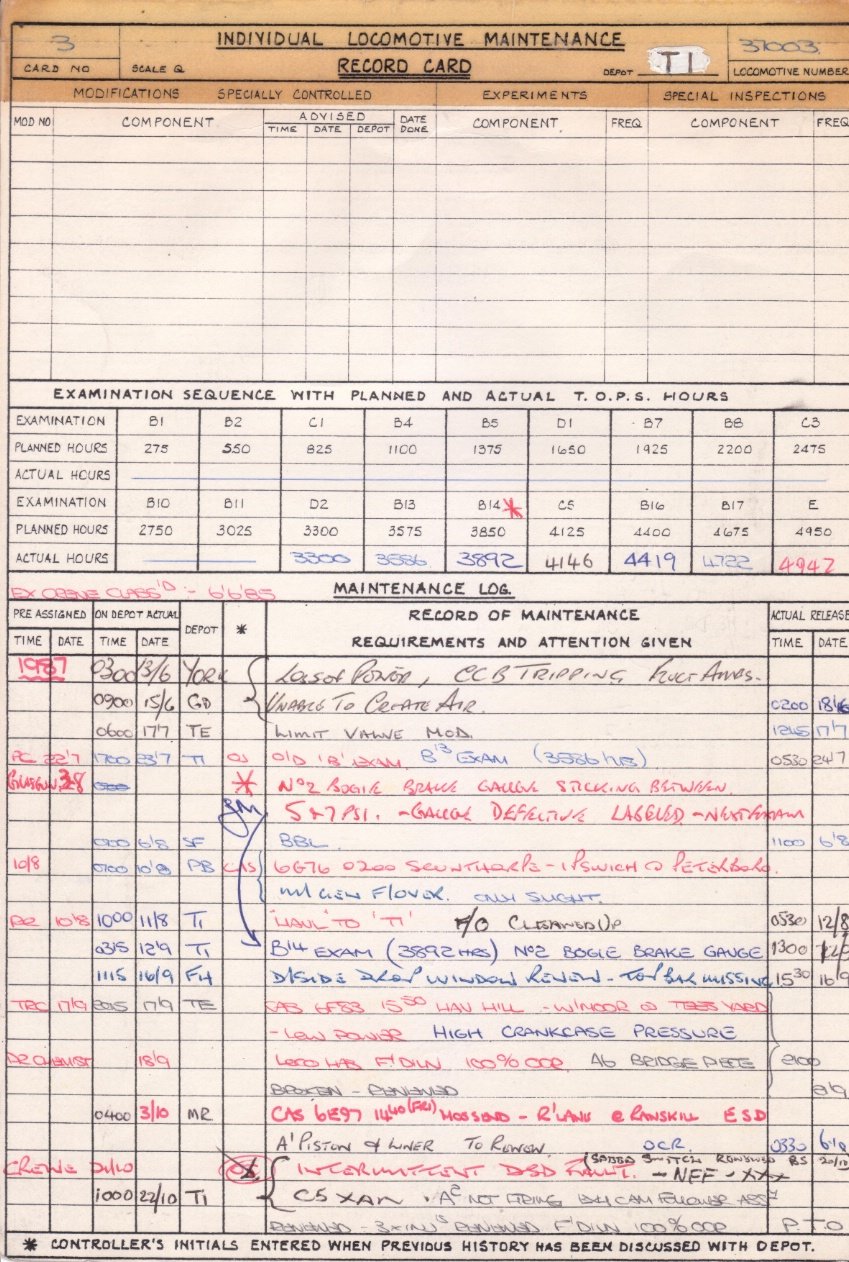 3 INDIVIDUAL LOCOMOTIVE MAINTENANCE 37003
CARD NO SCALE Q RECORD CARD DEPOT TI LOCOMOTIVE NUMBER
MODIFICATIONS SPECIALLY CONTROLLED EXPERIMENTS SPECIAL INSPECTIONS
MOD NO COMPONENT ADVISED DATE DONE COMPONENT FREQ COMPONENT FREQ
TIME DATE DEPOT
EXAMINATION SEQUENCE WITH PLANNED AND ACTUAL T.O.P.S. HOURS
EXAMINATION B1 B2 C1 B4 B5 D1 B7 B8 C3
PLANNED HOURS 275 550 825 1100 1375 1650 1925 2200 2475
ACTUAL HOURS
EXAMINATION B10 B11 D2 B13 B14* C5 B16 B17 E
PLANNED HOURS 2750 3025 3300 3575 3850 4125 4400 4675 4950
ACTUAL HOURS 3300 3586 3892 4146 4419 4722 4947
EX CREWE CLASS'D :- 6'6'85 MAINTENANCE LOG.
PRE ASSIGNED ON DEPOT ACTUAL DEPOT * RECORD OF MAINTENANCE ACTUAL RELEASE
TIME DATE TIME DATE REQUIREMENTS AND ATTENTION GIVEN TIME DATE
1987 0300 13/6 YORK LOSS OF POWER, CCB TRIPPING FLUCT AMPS.
0900 15/6 GD UNABLE TO CREATE AIR. 0200 18'6
0600 17'7 TE LIMIT VALVE MOD. 1245 17'7
22'7 1700 23'7 TI O/D 'B' EXAM. B13 EXAM (3586 HRS) 0530 24'7
* No2 BOGIE BRAKE GAUGE STICKING BETWEEN
5 & 7 PSI. - GAUGE DEFECTIVE LABELED - NEXT EXAM
0700 6'8 SF BBL 1100 6'8
10/8 0700 10'8 PB CAS 6G76 0200 SCUNTHORPE - IPSWICH @ PETERBORO.
M/GEN F/OVER. ONLY SLIGHT.
10'8 1000 11/8 TI "HAUL" TO 'TI' F/O CLEANED UP 0530 12/8
0315 12'9 TI B14 EXAM (3892 HRS) No2 BOGIE BRAKE GAUGE 1300
1115 16/9 FH D/SIDE DROP WINDOW RENEW - TOP BAR MISSING 1530 16/9
17/9 17/9 TE CAS 6F83 1550 HAV HILL - W/MOOR @ TEES YARD
- LOW POWER HIGH CRANKCASE PRESSURE
18/9 LOCO HAS F'DLN 100% OOP. A6 BRIDGE PIECE 2100
BROKEN - RENEWED
0400 3/10 MR CAS 6E97 1440 (FRI) MOSSEND - R'LANE @ RANSKILL ESD
A' PISTON & LINER TO RENEW. OCR. 0330 6'10
CREWE INTERMITTENT DSD FAULT. (SPEED SWITCH RENEWED BS 20/10 - NFF - XXX
1000 22/10 TI C5 XAM. A2 NOT FIRING CAM FOLLOWER ASSY
RENEWED - 3 x INJ'S RENEWED F'DLN 100% OOP P.T.O
* CONTROLLER'S INITIALS ENTERED WHEN PREVIOUS HISTORY HAS BEEN DISCUSSED WITH DEPOT.